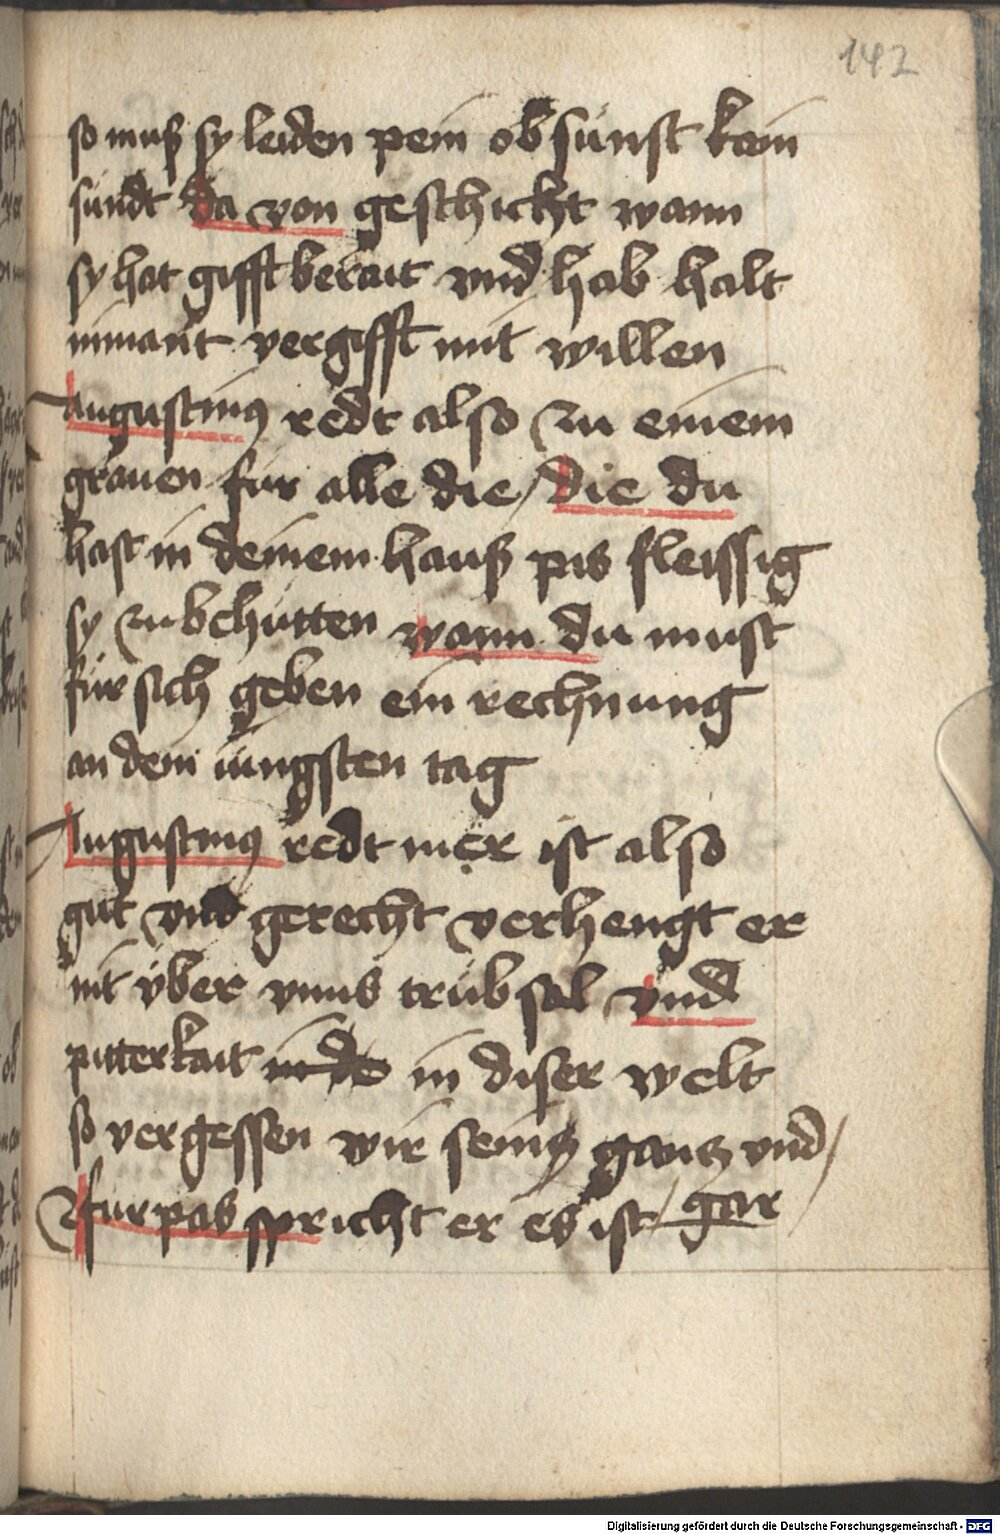 142
so muß sy leiden pein ob sünst kain
sündt da von geschicht wann
sy hat gifft berait vnd hab halt
nimant vergifft mit willen
Augustinꝰ redt also zu einem
grauen für alle die / die du
hast in deinem hauß pis fleissig
sy zu bchütten wann du must
für sich geben ein rechnung
an dem iüngsten tag
Augustinꝰ redt mer ist also
gut vnd gerecht verhengt er
nit über vnns trübsal vnd
pitterkait in de in diser welt
so vergessen wir seinꝰ gantz vnd /
furpas spricht er es ist / gar
Digitalisierung gefördert durch die Deutsche Forschungsgemeinschaft - DFG